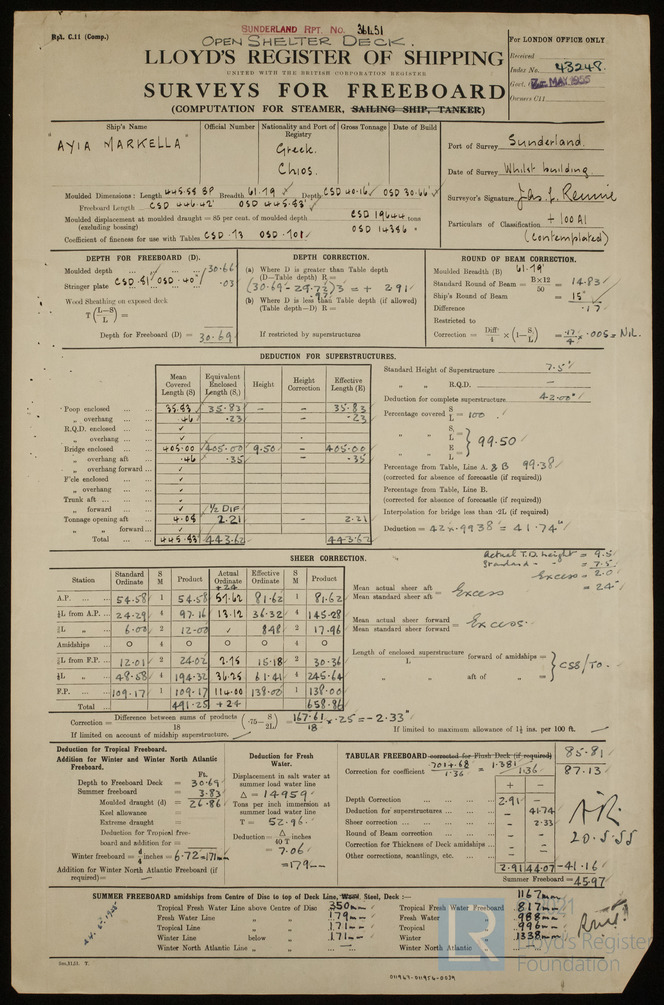 Rpt. C.11 (Comp.)
SUNDERLAND RPT. No. 36451
OPEN SHELTER DECK.
LLOYD'S REGISTER OF SHIPPING
UNITED WITH THE BRITISH CORPORATION REGISTER
SURVEYS FOR FREEBOARD
(COMPUTATION FOR STEAMER, SAILING SHIP, TANKER)
For LONDON OFFICE ONLY
Received
Index No. 43248.
Govt.
MAY 1955
Owners C11
Ship's Name
"AYIA MARKELLA"
Official Number
Nationality and Port of Registry
Greek.
Chios.
Gross Tonnage
Date of Build
Port of Survey Sunderland.
Date of Survey Whilst building.
Surveyor's Signature Jas. J. Rennie
Particulars of Classification + 100A1
(contemplated)
Moulded Dimensions: Length 445.58 BP Breadth 61.79 Depth CSD 40.16' OSD 30.66'
Freeboard Length CSD 446.42' OSD 445.83'
Moulded displacement at moulded draught = 85 per cent. of moulded depth CSD 19644 tons
(excluding bossing) OSD 14356
Coefficient of fineness for use with Tables CSD .73 OSD .701
DEPTH FOR FREEBOARD (D).
Moulded depth 30.66
Stringer plate CSD .51" OSD .40" .03
Wood Sheathing on exposed deck
T (L-S/L) =
Depth for Freeboard (D) = 30.69
DEPTH CORRECTION.
(a) Where D is greater than Table depth
(D—Table depth) R =
(30.69 - 29.72) 3 = + 2.91
.97
(b) Where D is less than Table depth (if allowed)
(Table depth—D) R =
If restricted by superstructures
ROUND OF BEAM CORRECTION.
Moulded Breadth (B) 61.79'
Standard Round of Beam = B×12/50 = 14.83
Ship's Round of Beam = 15"
Difference .17
Restricted to
Correction = Diff/4 × (1-S/L) = .17/4 × .005 = NIL.
DEDUCTION FOR SUPERSTRUCTURES.
Mean Covered Length (S) Equivalent Enclosed Length (S₁) Height Height Correction Effective Length (E)
Poop enclosed 35.83 35.83 - - 35.83
" overhang .46 .23 - .23
R.Q.D. enclosed
" overhang
Bridge enclosed 405.00 405.00 9.50 - 405.00
" overhang aft .46 .35 - .35
" overhang forward
F'cle enclosed
" overhang
Trunk aft
" forward ½ DIF
Tonnage opening aft 4.08 2.21 - 2.21
" " forward
Total 445.83 443.62 443.62
Standard Height of Superstructure 7.5'
" " R.Q.D. —
Deduction for complete superstructure 42.00"
Percentage covered S/L = 100
" " S₁/L =
" " E/L = } 99.50
Percentage from Table, Line A. & B 99.38
(corrected for absence of forecastle (if required))
Percentage from Table, Line B.
(corrected for absence of forecastle (if required))
Interpolation for bridge less than ·2L (if required)
Deduction = 42 × .9938 = 41.74"
SHEER CORRECTION.
Actual T.D. height = 9.5
Standard - - = 7.5
Excess = 2.0
= 24"
Station Standard Ordinate S M Product Actual Ordinate +24 Effective Ordinate S M Product
A.P. 54.58 1 54.58 57.62 81.62 1 81.62
⅙L from A.P. 24.29 4 97.16 13.12 36.32 4 145.28
⅓L " 6.00 2 12.00 8.98 2 17.96
Amidships 0 4 0 0 0 4 0
⅓L from F.P. 12.01 2 24.02 2.75 15.18 2 30.36
⅙L " 48.58 4 194.32 36.25 61.41 4 245.64
F.P. 109.17 1 109.17 114.00 138.00 1 138.00
Total 491.25 + 24 658.86
Mean actual sheer aft / Mean standard sheer aft = Excess
Mean actual sheer forward / Mean standard sheer forward = Excess.
Length of enclosed superstructure / L forward of amidships =
" aft of " = } CSS/TO.
Correction = Difference between sums of products / 18 (·75 - S/2L) = 167.61/18 × .25 = -2.33"
If limited on account of midship superstructure.
If limited to maximum allowance of 1½ ins. per 100 ft.
Deduction for Tropical Freeboard.
Addition for Winter and Winter North Atlantic Freeboard.
Ft.
Depth to Freeboard Deck = 30.69
Summer freeboard = 3.83
Moulded draught (d) = 26.86
Keel allowance =
Extreme draught =
Deduction for Tropical freeboard and addition for
Winter freeboard = d/4 inches = 6.72" = 171mm
Addition for Winter North Atlantic Freeboard (if required) = —
Deduction for Fresh Water.
Displacement in salt water at summer load water line
Δ = 14959
Tons per inch immersion at summer load water line
T = 52.96
Deduction = Δ/40 T inches
= 7.06
= 179mm
TABULAR FREEBOARD corrected for Flush Deck (if required) 85.81
Correction for coefficient .7014+.68/1.36 = 1.381/1.36 87.13
+ −
Depth Correction 2.91 -
Deduction for superstructures - 41.74
Sheer correction - 2.33
Round of Beam correction - -
Correction for Thickness of Deck amidships - -
Other corrections, scantlings, etc. - -
2.91 44.07 -41.16
Summer Freeboard = 45.97
20.5.55
SUMMER FREEBOARD amidships from Centre of Disc to top of Deck Line, Wood, Steel, Deck :— 1167mm
Tropical Fresh Water Line above Centre of Disc 350mm
Fresh Water Line " " 179mm
Tropical Line " " 171mm
Winter Line below " 171mm
Winter North Atlantic Line " " —
Tropical Fresh Water Freeboard 817mm
Fresh Water " 988mm
Tropical " 996mm
Winter " 1338mm
Winter North Atlantic "
LR
Lloyd's Register
Foundation
011967-011976-0039